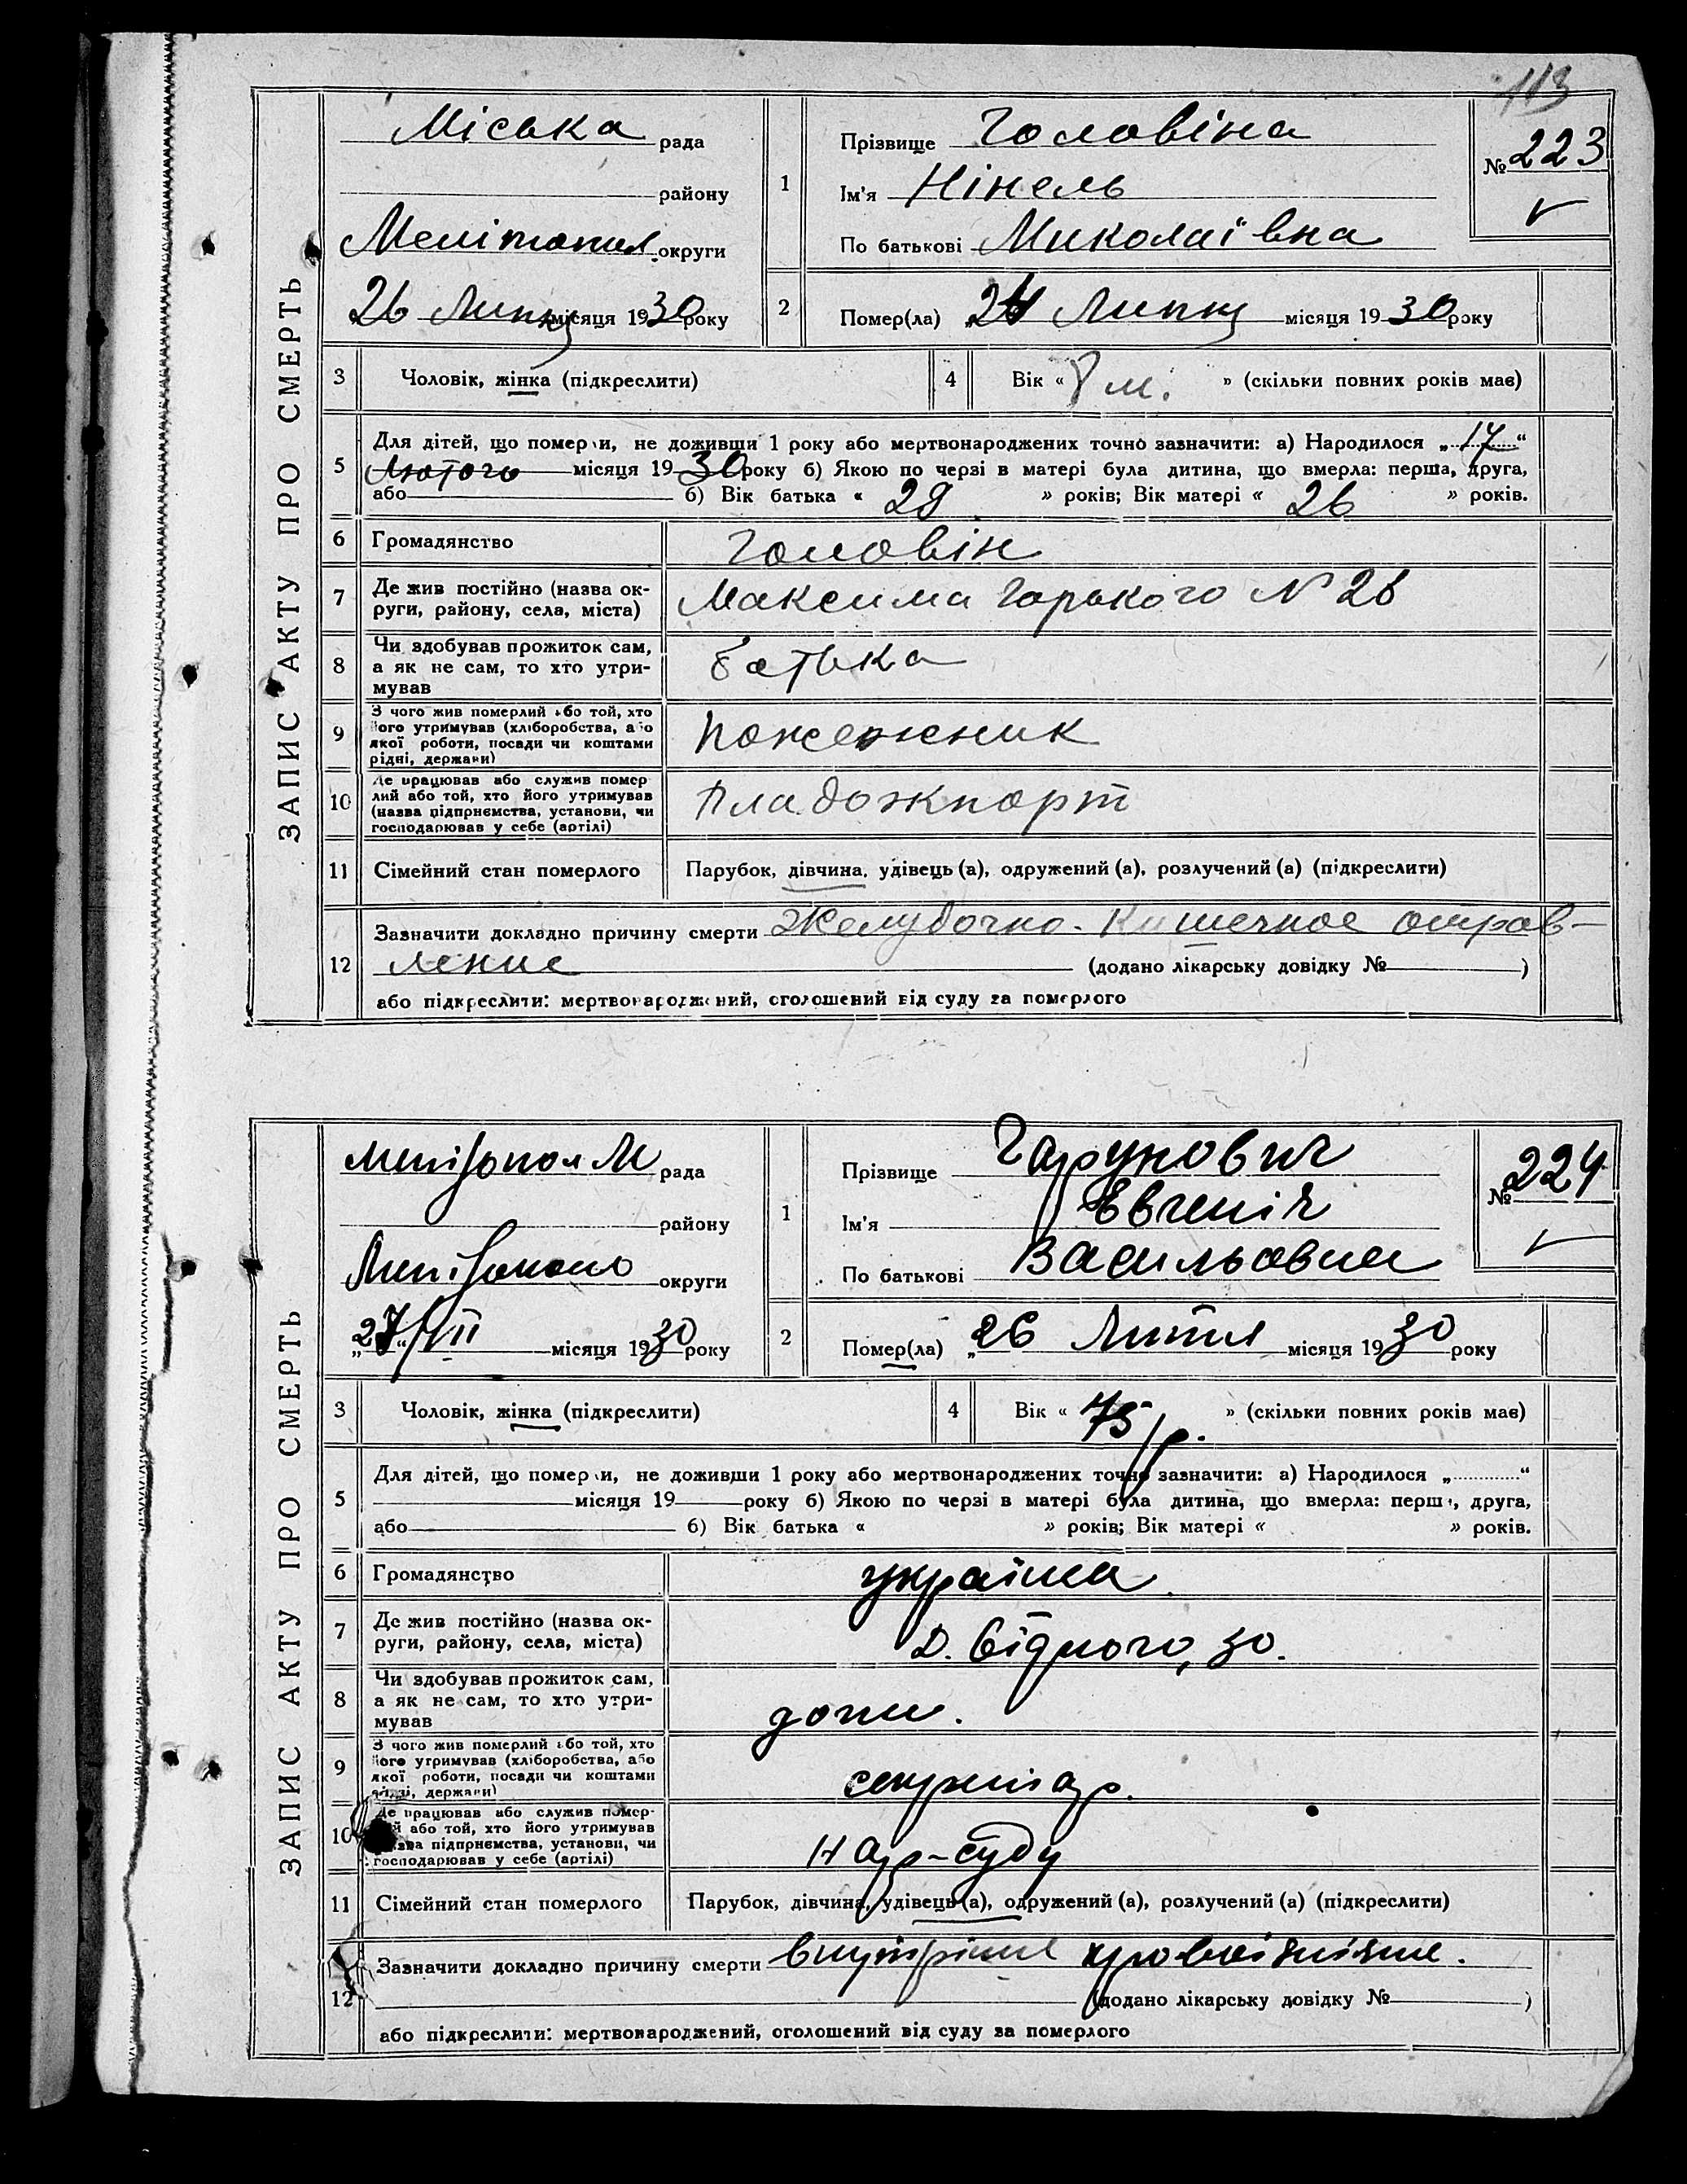 113
ЗАПИС АКТУ ПРО СМЕРТЬ
Міська рада
району
Мелітопіл. округи
26 Липця місяця 1930 року
1
Прізвище Головіна
Ім'я Нінель
По батькові Миколаївна
№ 223
2
Помер(ла) „24 Липця місяця 1930 року
3
Чоловік, жінка (підкреслити)
4
Вік « 8 м. » (скільки повних років має)
5
Для дітей, що померли, не доживши 1 року або мертвонароджених точно зазначити: а) Народилося „17“
Лютого місяця 1930 року б) Якою по черзі в матері була дитина, що вмерла: перша, друга,
або б) Вік батька « 29 » років; Вік матері « 26 » років.
6
Громадянство
Головін
7
Де жив постійно (назва ок-
руги, району, села, міста)
Максима Горького N 26
8
Чи здобував прожиток сам,
а як не сам, то хто утри-
мував
батька
9
З чого жив померлий або той, хто
його утримував (хліборобства, або
якої роботи, посади чи коштами
рідні, держави)
пожежник
10
Де працював або служив помер-
лий або той, хто його утримував
(назва підприємства, установи, чи
господарював у себе (артілі)
11
Сімейний стан померлого
Парубок, дівчина, удівець (а), одружений (а), розлучений (а) (підкреслити)
12
Зазначити докладно причину смерти Желудочно-Кишечное отрав-
ление (додано лікарську довідку № )
або підкреслити: мертвонароджений, оголошений від суду за померлого
ЗАПИС АКТУ ПРО СМЕРТЬ
Мелітопол М рада
району
округи
„27“/VII місяця 1930 року
1
Прізвище
Ім'я Евгенія
По батькові Васильовна
№ 224
2
Помер(ла) „26 Липня місяця 1930 року
3
Чоловік, жінка (підкреслити)
4
Вік « 75 р. » (скільки повних років має)
5
Для дітей, що померли, не доживши 1 року або мертвонароджених точно зазначити: а) Народилося „ “
місяця 19 року б) Якою по черзі в матері була дитина, що вмерла: перша, друга,
або б) Вік батька « » років; Вік матері « » років.
6
Громадянство
україн­ка
7
Де жив постійно (назва ок-
руги, району, села, міста)
Д. Бідного, 30.
8
Чи здобував прожиток сам,
а як не сам, то хто утри-
мував
дочка.
9
З чого жив померлий або той, хто
його утримував (хліборобства, або
якої роботи, посади чи коштами
рідні, держави)
секретар.
10
Де працював або служив помер-
лий або той, хто його утримував
(назва підприємства, установи, чи
господарював у себе (артілі)
нар-суду
11
Сімейний стан померлого
Парубок, дівчина, удівець (а), одружений (а), розлучений (а) (підкреслити)
12
Зазначити докладно причину смерти
(додано лікарську довідку № )
або підкреслити: мертвонароджений, оголошений від суду за померлого